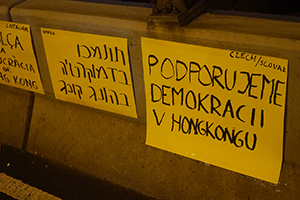 CATALAN
LÇA
A
MOCRÀCIA
NG KONG
תומכו
בדמוקרטיה
בהונג קונג
CZECH/SLOVAK
PODPORUJEME
DEMOKRACII
V HONGKONGU